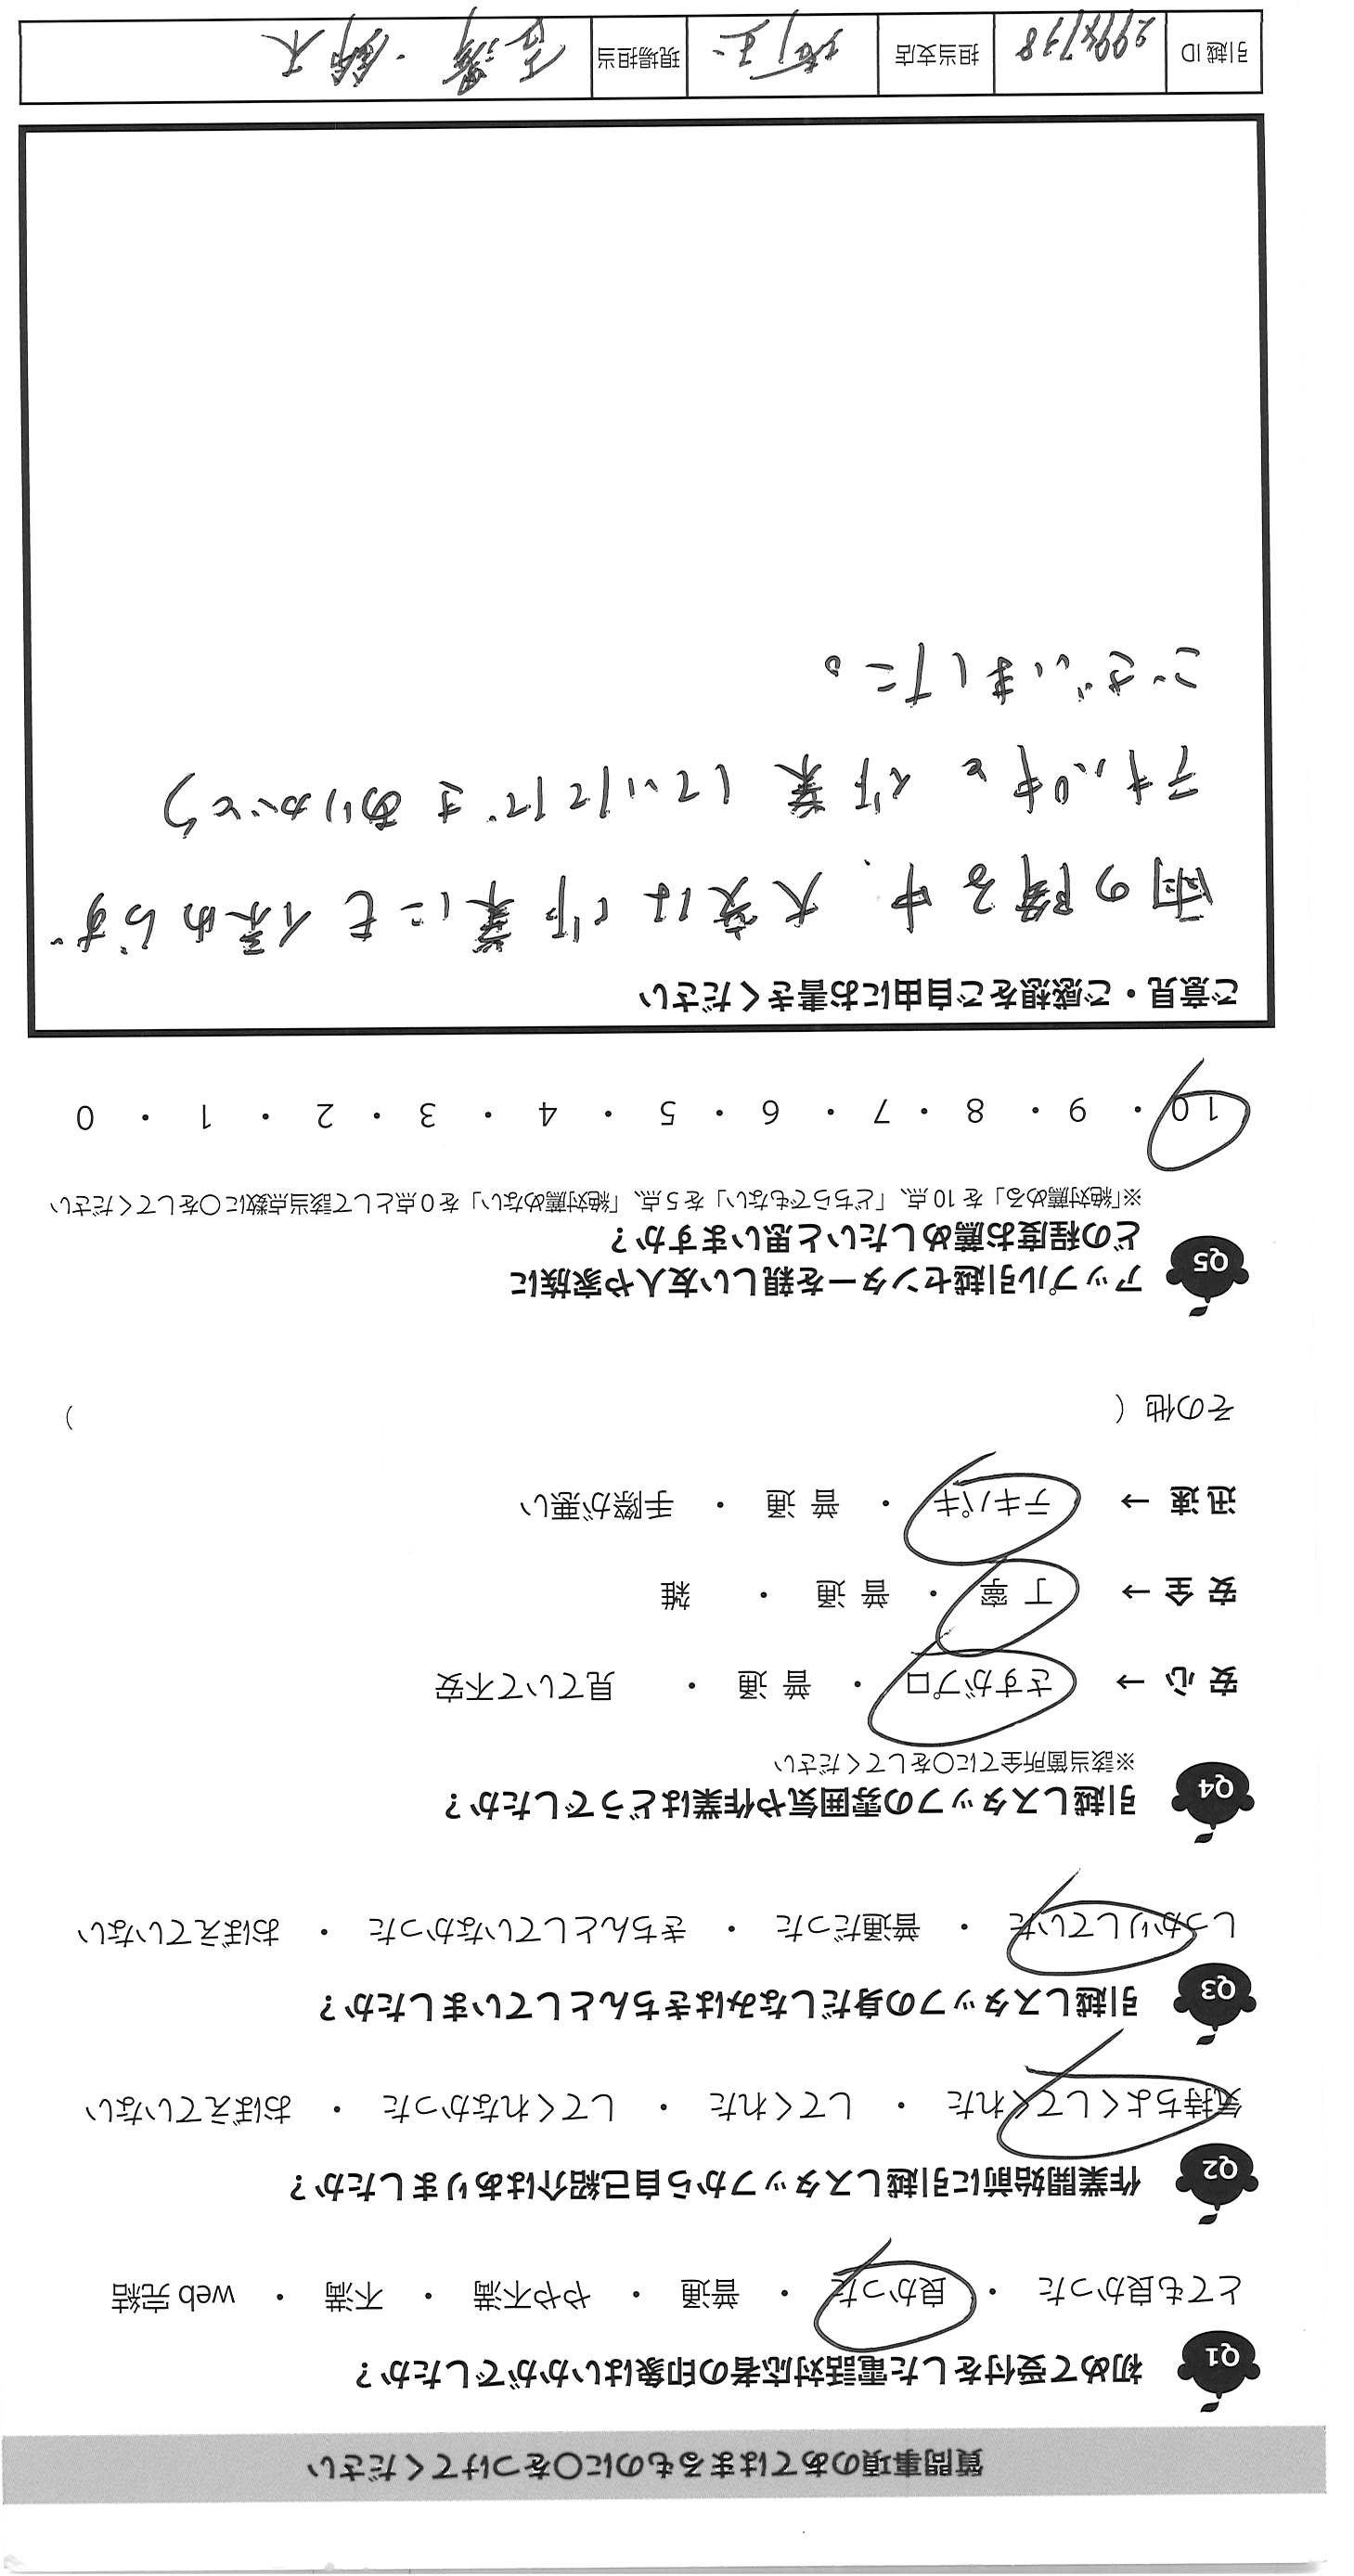 質問事項のあてはまるものに〇をつけてください
Q1 初めて受付をした電話対応者の印象はいかがでしたか？
とても良かった ・ 良かった ・ 普通 ・ やや不満 ・ 不満 ・ web 完結
Q2 作業開始前に引越しスタッフから自己紹介はありましたか？
気持ちよくしてくれた ・ してくれた ・ してくれなかった ・ おぼえていない
Q3 引越しスタッフの身だしなみはきちんとしていましたか？
しっかりしていた ・ 普通だった ・ きちんとしていなかった ・ おぼえていない
Q4 引越しスタッフの雰囲気や作業はどうでしたか？
※該当箇所全てに〇をしてください
安 心 → さすがプロ ・ 普 通 ・ 見ていて不安
安 全 → 丁 寧 ・ 普 通 ・ 雑
迅 速 → テキパキ ・ 普 通 ・ 手際が悪い
その他（ ）
Q5 アップル引越センターを親しい友人や家族に
どの程度お薦めしたいと思いますか？
※「絶対薦める」を 10 点、「どちらでもない」を 5 点、「絶対薦めない」を 0 点として該当点数に〇をしてください
10 ・ 9 ・ 8 ・ 7 ・ 6 ・ 5 ・ 4 ・ 3 ・ 2 ・ 1 ・ 0
ご意見・ご感想をご自由にお書きください
雨の降る中、大変は作業にも係わらず
テキパキと作業していただき ありがとう
ございました。
引越 ID 担当支店 埼玉 現場担当 ・鈴木